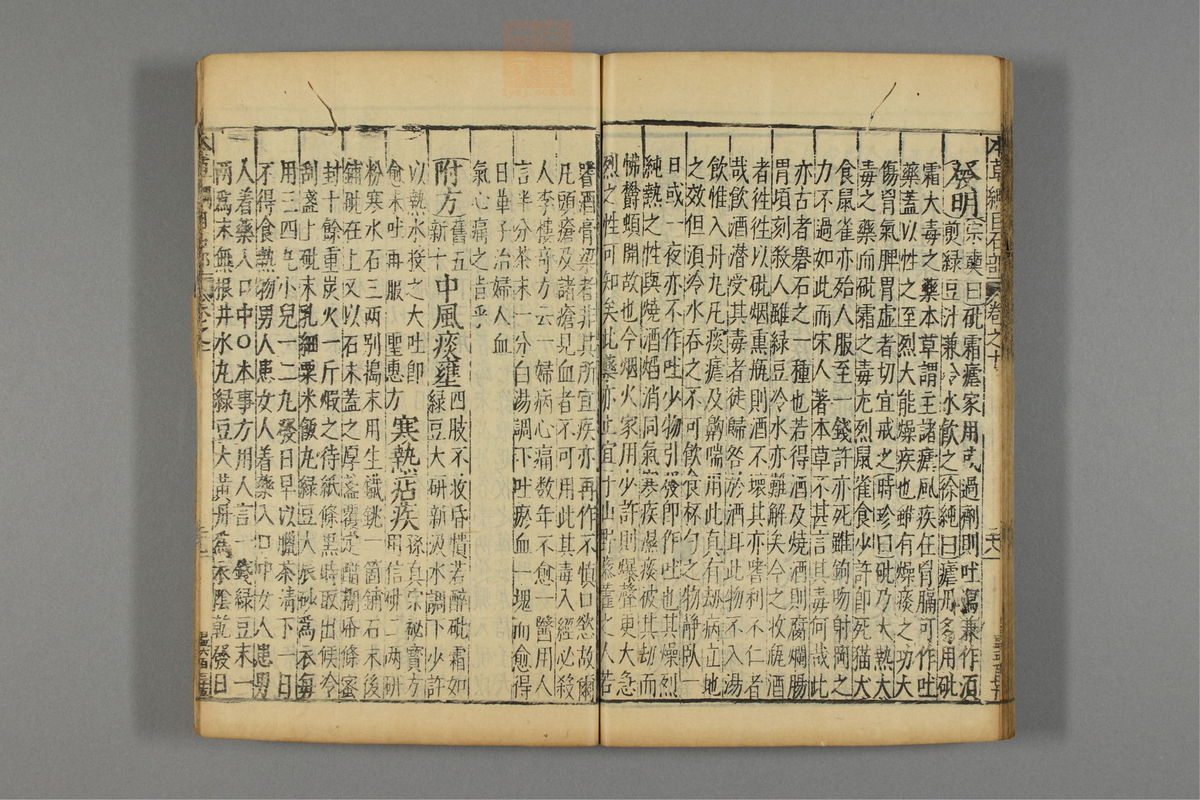 本草綱目石部 卷之十
發明宗奭曰砒霜瘧家用或過劑則吐瀉兼作須
煎綠豆汁兼冷水飲之徐純曰瘧丹多用砒
霜大毒之藥本草謂主諸瘧風疾在胃膈可作吐
藥蓋以性之至烈大能燥疾也雖有燥痰之功大
傷胃氣脾胃虛者切宜戒之時珍曰砒乃大熱大
毒之藥而砒霜之毒尤烈鼠雀食少許即死猫犬
食鼠雀亦殆人服至一錢許亦死雖鉤吻射罔之
力不過如此而宋人著本草不甚言其毒何哉此
亦古者礜石之一種也若得酒及燒酒則腐爛腸
胃頃刻殺人雖綠豆冷水亦難解矣今之收瓶酒
者徃徃以砒烟熏瓶則酒不壞其亦嗜利不仁者
哉飲酒潜受其毒者徒歸咎於酒耳此物不入湯
飲惟入丹丸凡痰瘧及齁喘用此真有劫病立地
之效但須冷水吞之不可飲食杯勺之物靜臥一
日或一夜亦不作吐少物引發即作吐也其燥烈
純熱之性與燒酒焰消同氣寒疾濕痰被其劫而
怫鬱頓開故也今烟火家用少許則爆聲更大急
烈之性可知矣此藥亦止宜于山野藜藿之人若
嗜酒膏粱者非其所宜疾亦再作不慎口慾故爾
凡頭瘡及諸瘡見血者不可用此其毒入經必殺
人李樓奇方云一婦病心痛數年不愈一醫用人
言半分茶末一分白湯調下吐瘀血一塊而愈得
日華子治婦人血
氣心痛之旨乎
附方舊五新十中風痰壅四肢不收昏憒若醉砒霜如綠豆大研新汲水調下少許
以熱水投之大吐即
愈未吐再服 聖惠方 寒熱痁疾孫真宗秘寶方用信砒二兩研
粉寒水石三兩別搗末用生鐵銚一箇鋪石末後
鋪砒在上又以石末蓋之厚盞覆定醋糊紙條蜜
封十餘重炭火一斤煅之待紙條黑時取出候冷
刮盞上砒末乳細粟米飯丸綠豆大辰砂爲衣每
用三四丸小兒一二丸發日早以臘茶清下一日
不得食熱物男人患女人着藥入口中女人患男
人着藥入口中〇本事方用人言一錢綠豆末一
兩爲末無根井水丸綠豆大黃丹爲衣陰乾發日